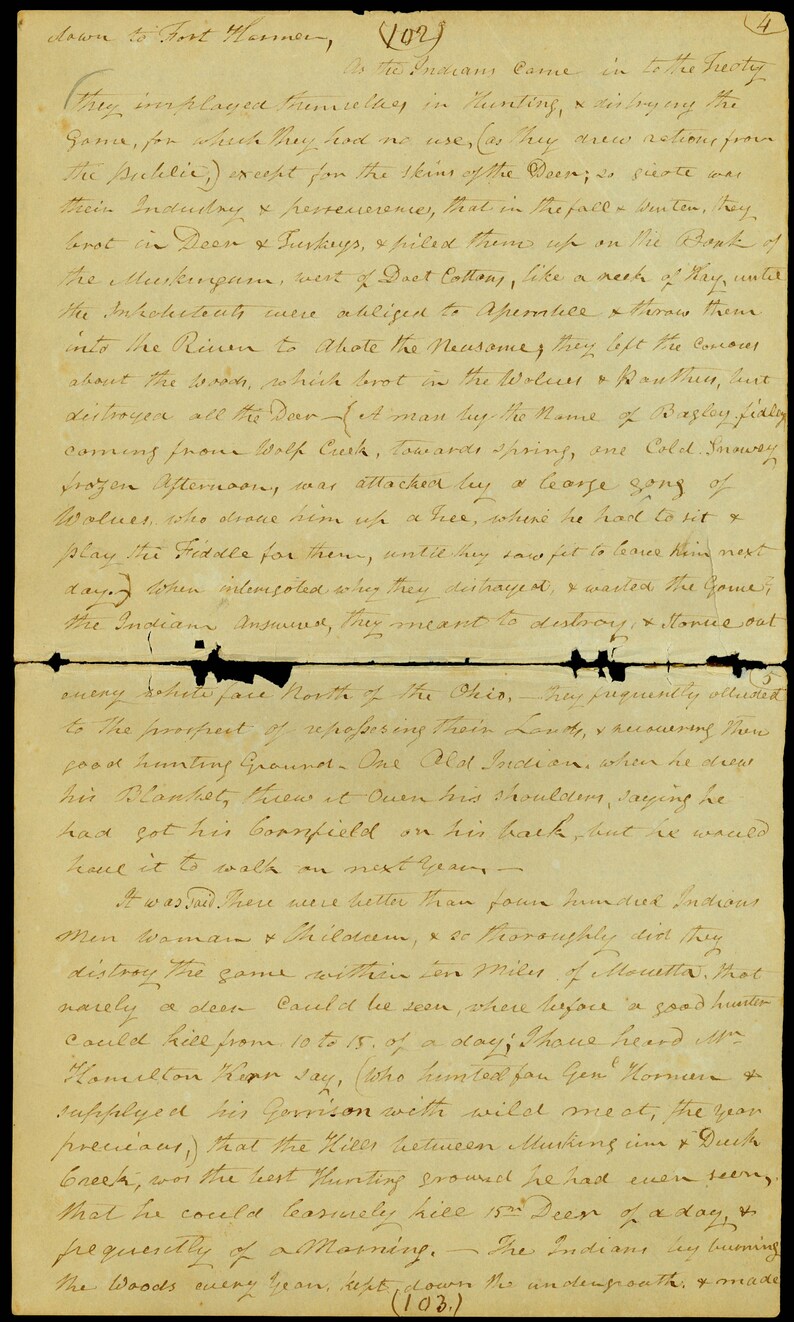 4
down to Fort Harmer, (102)
As the Indians Came in to the Treaty
they imployed themselves in Hunting, & distroying the
Game, for which they had no use, (as they drew rations from
the publick,) except for the skins of the Deer; so greate was
their Industry & perseverence, that in the fall & winter, they
brot in Deer & Turkeys, & piled them up on the Bank of
the Muskingum, west of Doct Cottons, like a reek of Hay, until
the Inhabitents were obliged to Apemble & throw them
into the River to Abate the Neusome; they left the Carcases
about the Woods, which brot in the Wolves & Panthers, but
distroyed all the Deer — (A man by the Name of Bagley fidler
coming from Wolf Creek, towards spring, one Cold Snowey
frozen Afternoon, was attacked by a learge gang of
Wolves, who drove him up a Tree, where he had to sit &
play the Fiddle for them, until they saw fit to leave him next
day.) When interigated why they distroyed, & wasted the Game,
the Indians Answered, they meant to destroy, & Starve out
5
every white face North of the Ohio, — they frequently alluded
to the prospect of repossesing their Lands, & recovering their
good hunting Ground. One Old Indian, when he drew
his Blanket, threw it Over his shoulders, saying he
had got his Cornfield on his back, but he would
have it to walk on next Year, —
It was said There were better than four hundred Indians
Men Woman & Children, & so thoroughly did they
distroy the game within ten miles of Mauetta, that
rarely a deer Could be seen, where before a good hunter
Could kill from 10 to 15. of a day; I have heard Mr
Hamilton Kerr say, (Who hunted for Genl Harmer &
supplyed his Garrison with wild meat, the Year
precious,) that the Hills between Muskingum & Duck
Creek, was the best Hunting ground he had ever seen,
that he could leasurely kill 15n Deer of a day, &
frequently of a Morning. — The Indians by burning
the Woods every Year, kept down the undergrouth. & made
(103.)